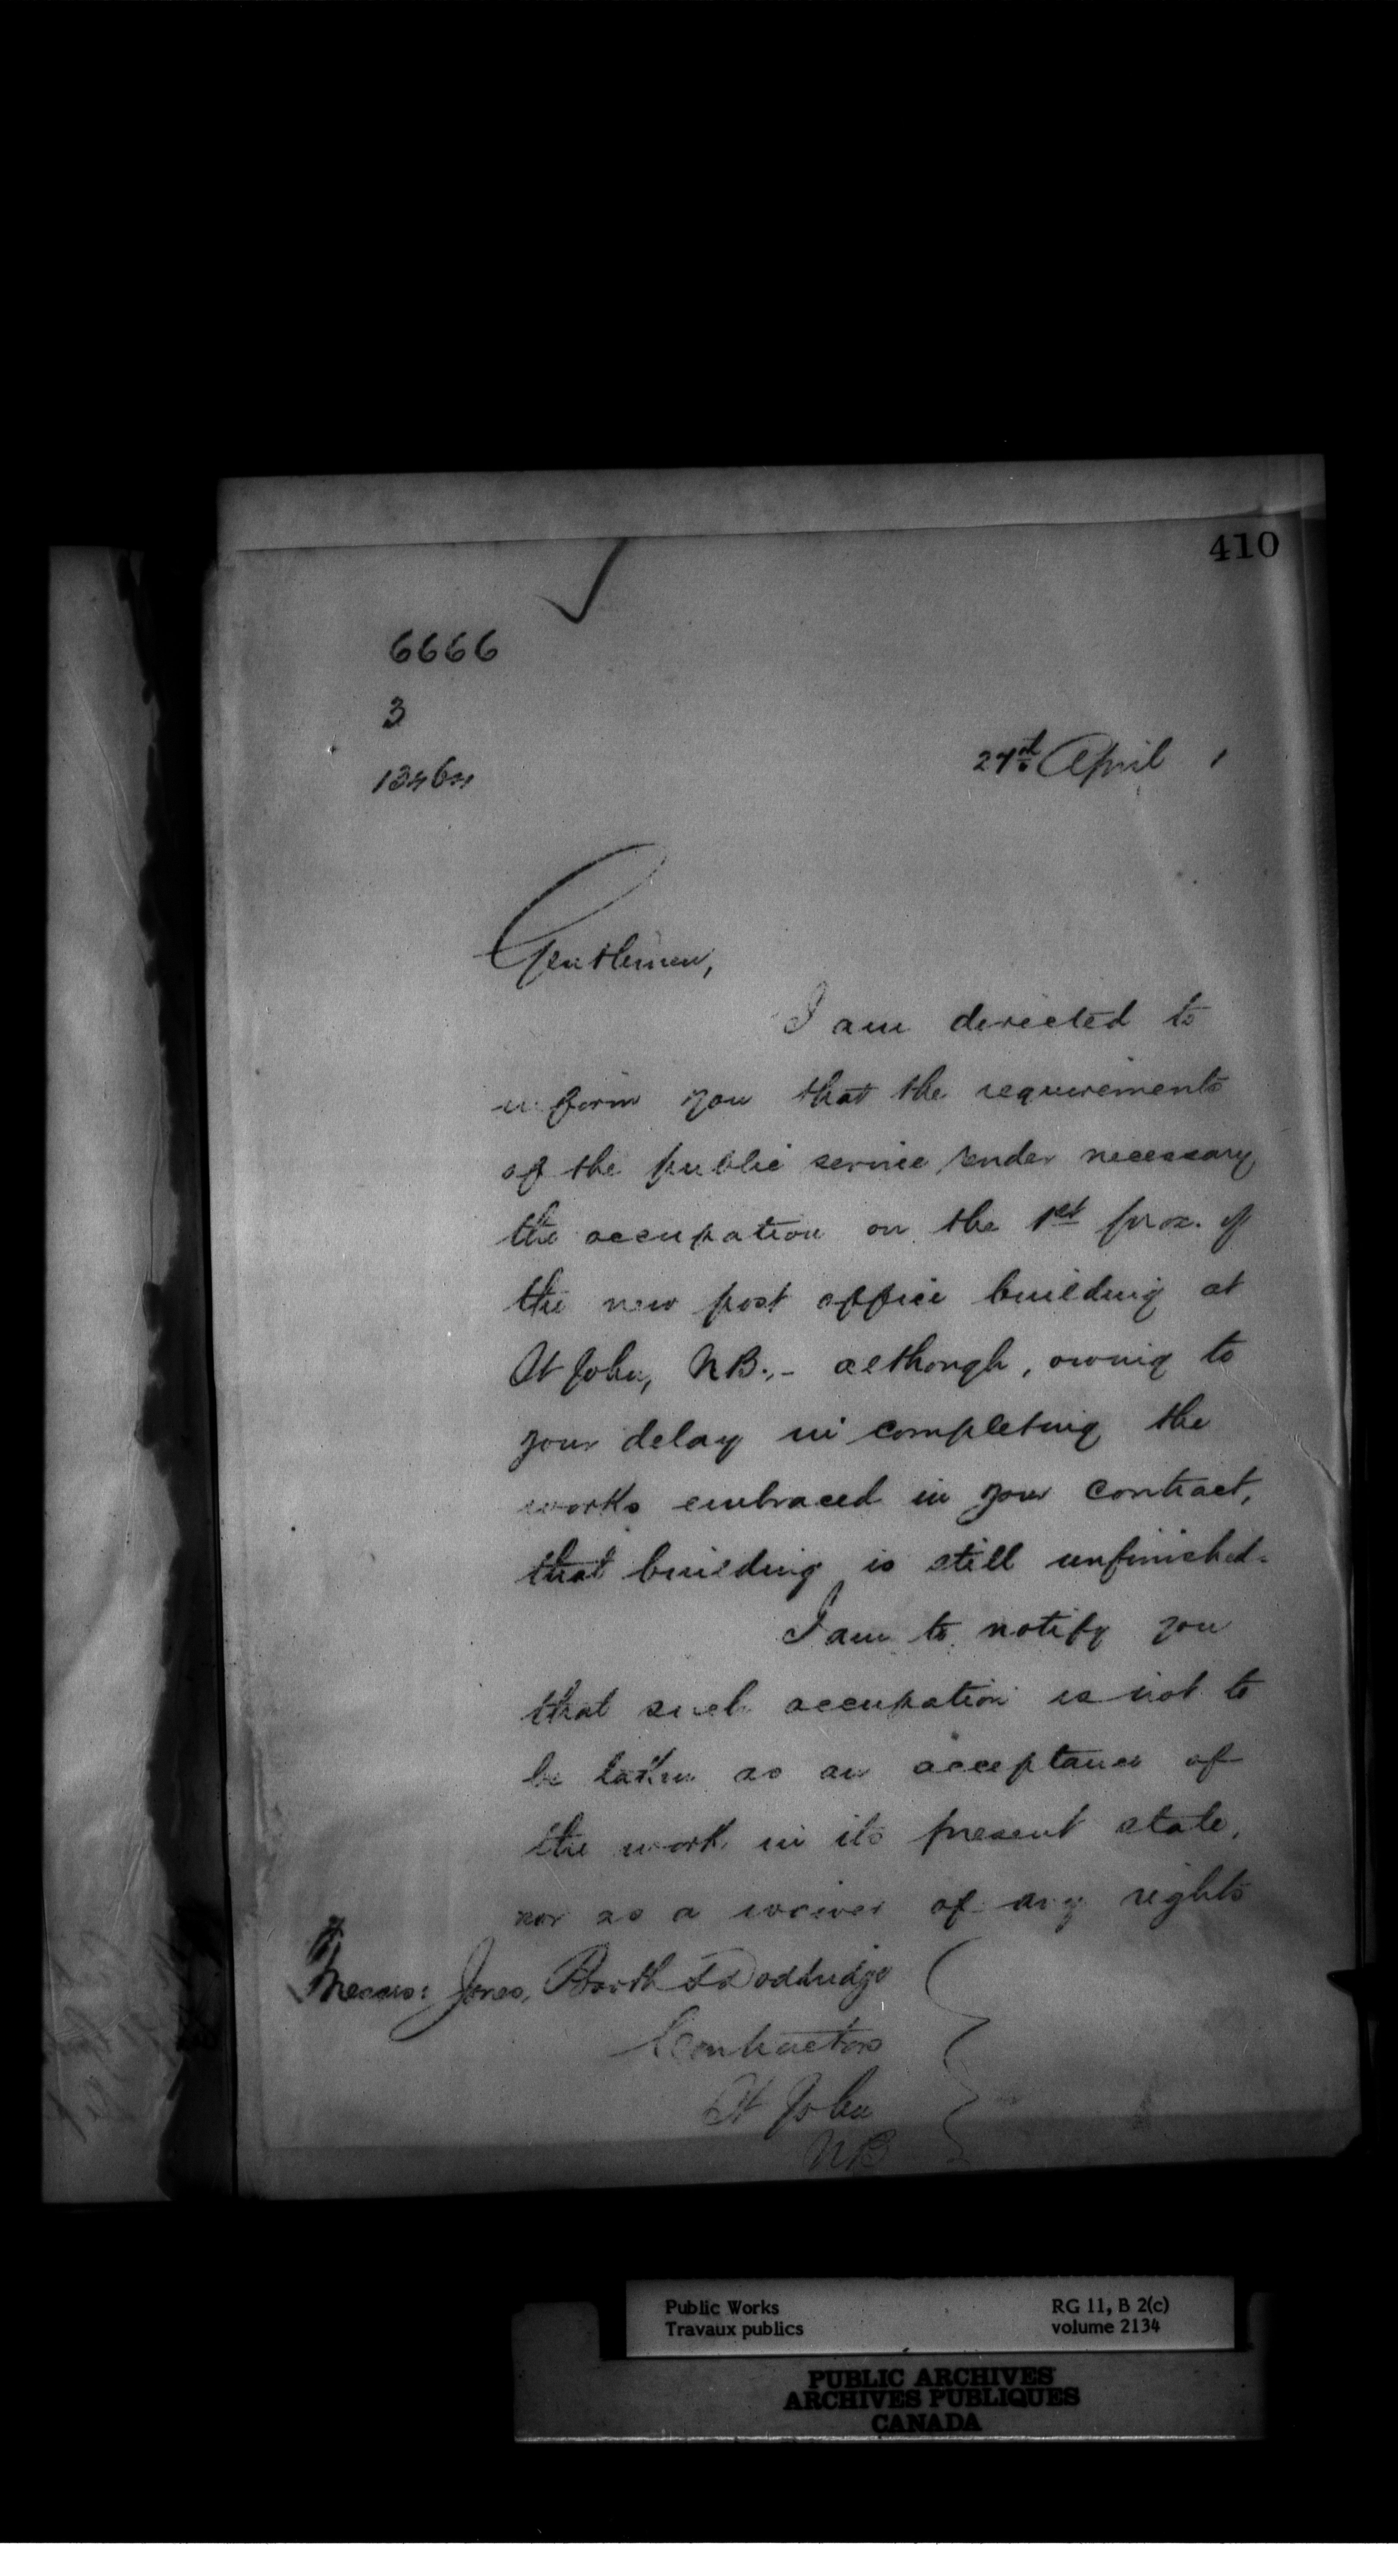 410
6666
3
27th April 1
Gentlemen,
I am directed to
inform you that the requirements
of the public service render necessary
the occupation on the 1st prox. of
the new post office building at
St John, NB.,- although, owing to
your delay in completing the
works embraced in your contract,
that building is still unfinished.
I am to notify you
that such occupation is not to
be taken as an acceptance of
the work in its present state,
nor as a waiver of any rights
Messrs: Jones, Barth & Doddridge
Contractors
St John
NB
Public Works
Travaux publics
RG 11, B 2(c)
volume 2134
PUBLIC ARCHIVES
ARCHIVES PUBLIQUES
CANADA